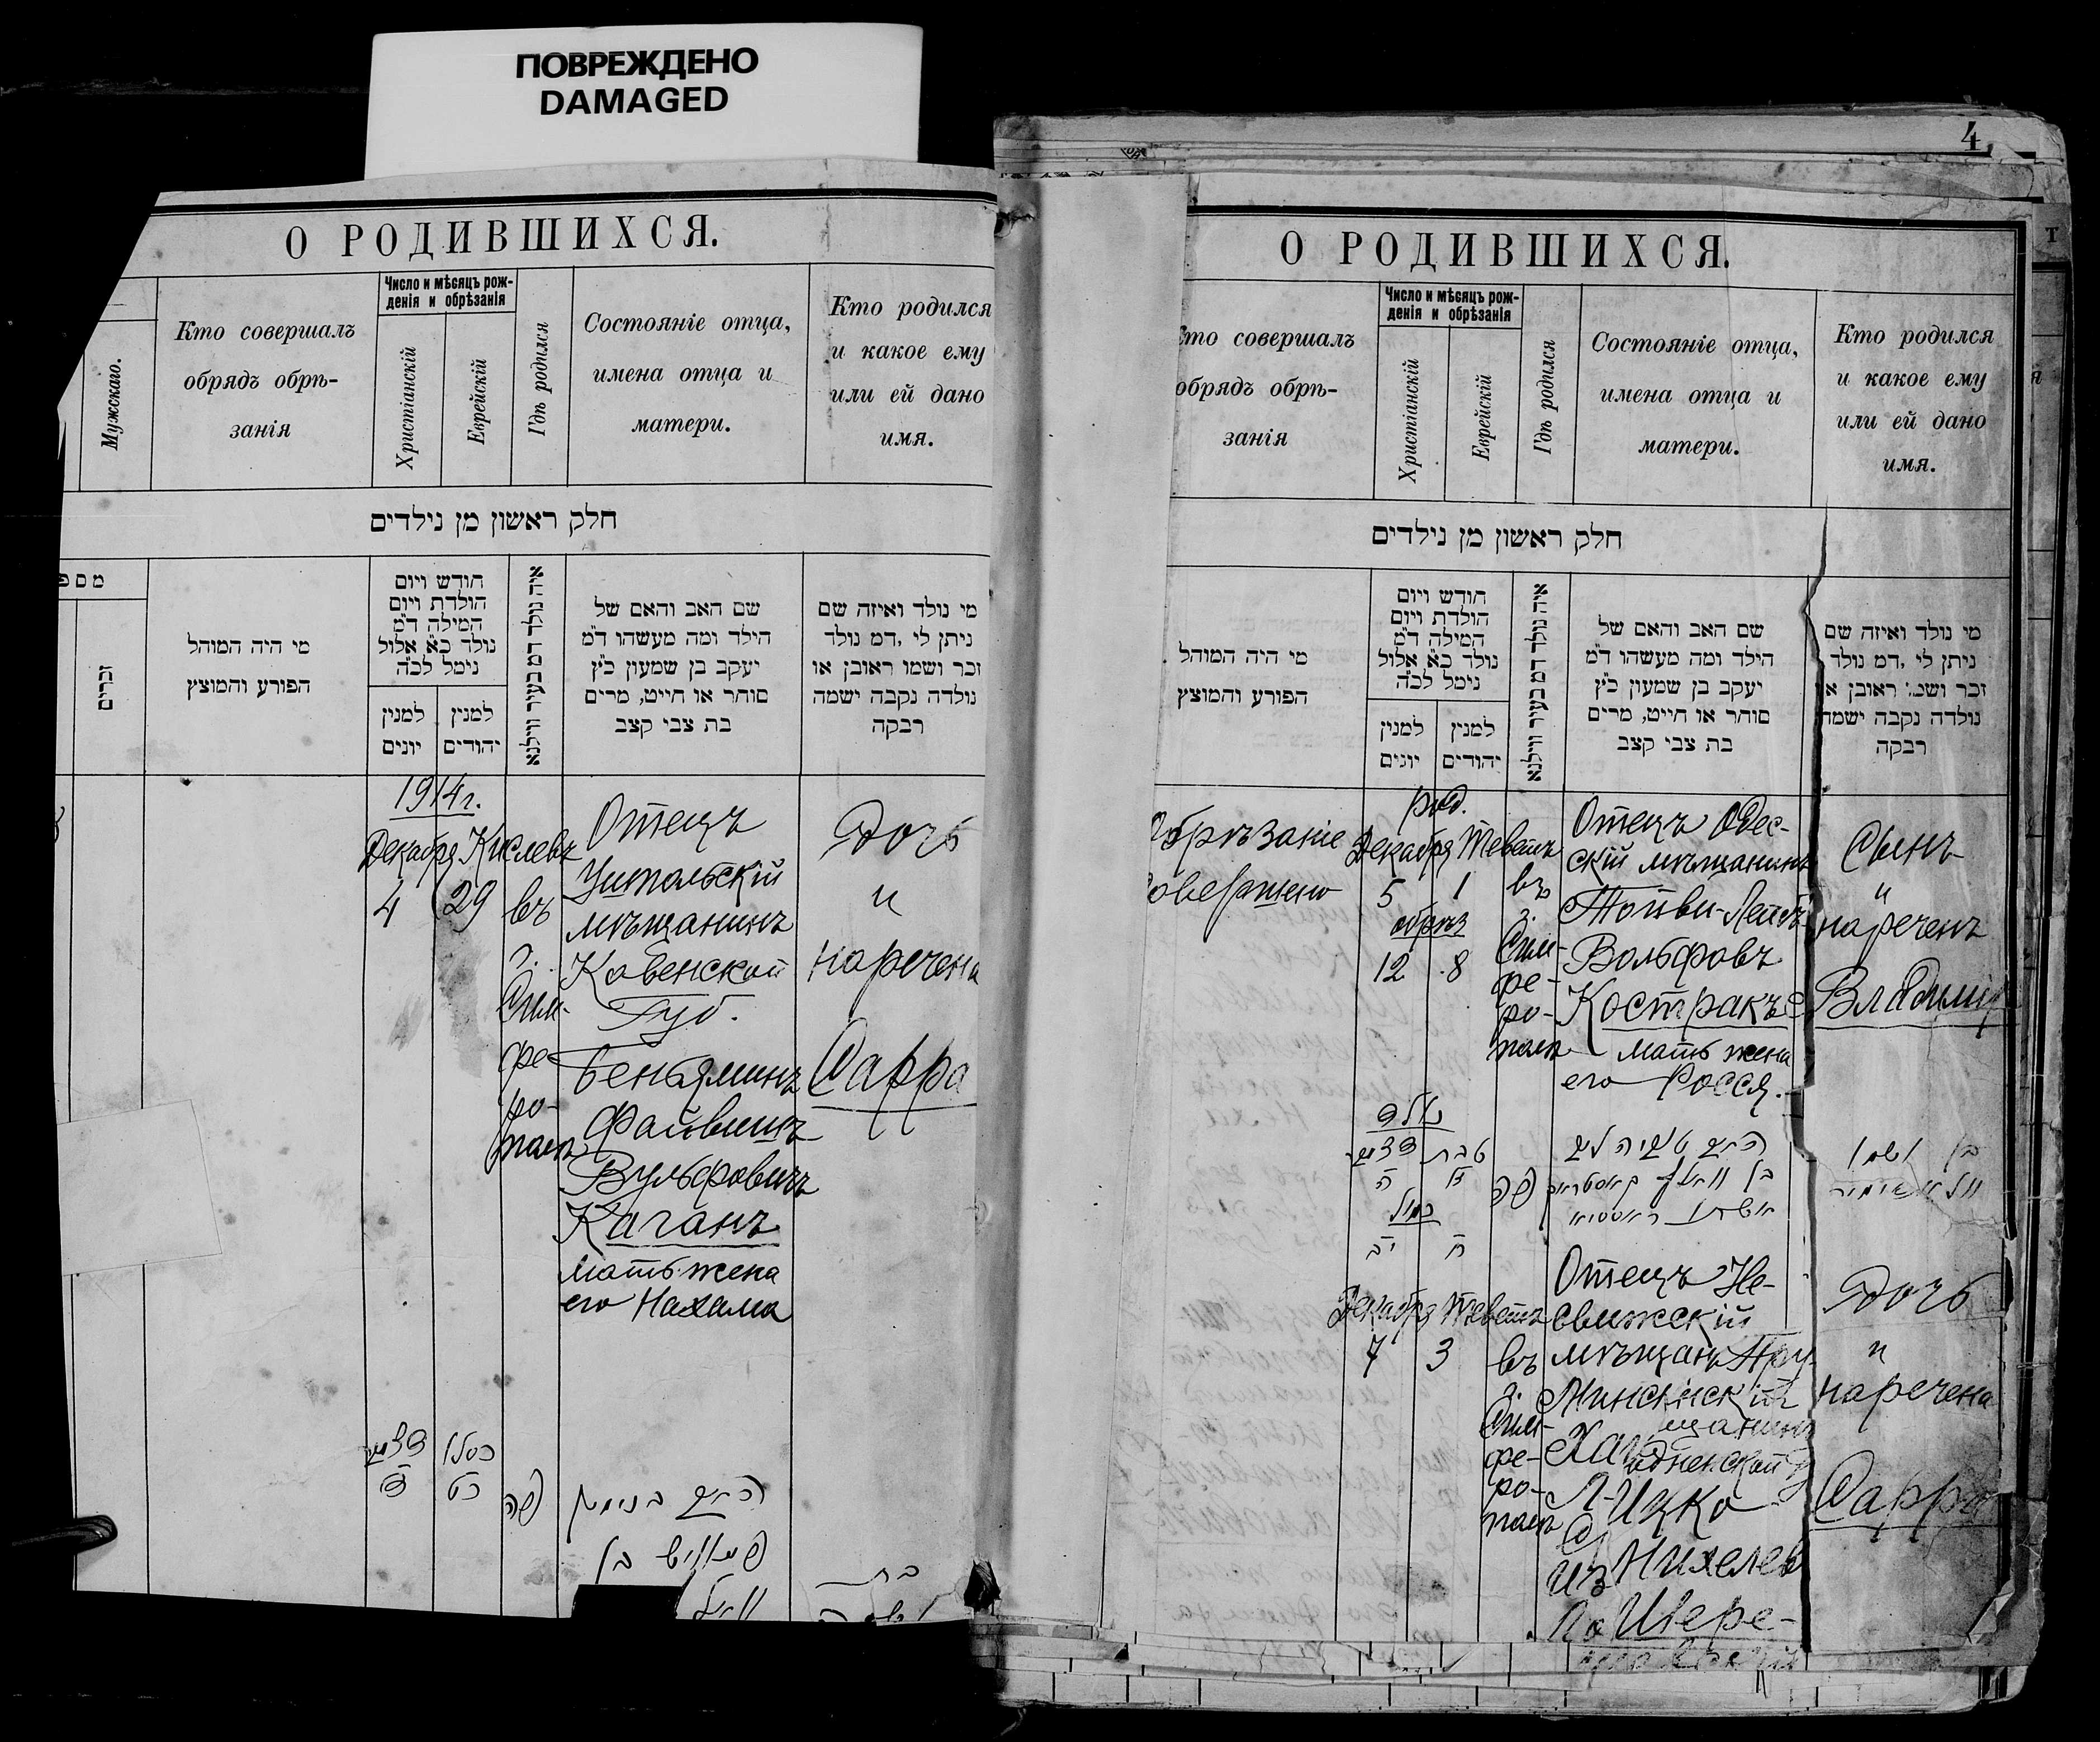 ПОВРЕЖДЕНО
DAMAGED
О РОДИВШИХСЯ.
Мужскаго.
Кто совершалъ
обрядъ обрѣ-
занія
Число и мѣсяцъ рож-
денія и обрѣзанія
Христіанскій
Еврейскій
Гдѣ родился
Состояніе отца,
имена отца и
матери.
Кто родился
и какое ему
или ей дано
имя.
חלק ראשון מן נילדים
זכרים
מי היה המוהל
הפורע והמוצץ
חודש ויום
הולדת ויום
המילה ד״מ
נולד כ״א אלול
נימל לכ״ה
למנין
יונים
למנין
יהודים
איה נולד דמ בעיר ווילנא
שם האב והאם של
הילד ומה מעשהו ד״מ
יעקב בן שמעון כ״ץ
סוחר או חייט, מרים
בת צבי קצב
מי נולד ואיזה שם
ניתן לי ,דמ נולד
זכר ושמו ראובן או
נולדה נקבה ישמה
רבקה
1914г.
Декабря Кислевъ
4 29
въ
г.
Сим-
фе-
ро-
полѣ
Отецъ
Ушпольскій
мѣщанинъ
Ковенской
Губ.
Беньяминъ
Файвишъ
Вульфовичъ
Каганъ
мать жена
его Нахама
Дочь
и
наречена
Сарра
כסלו
כט
פה
בן
4
О РОДИВШИХСЯ.
Кто совершалъ
обрядъ обрѣ-
занія
Число и мѣсяцъ рож-
денія и обрѣзанія
Христіанскій
Еврейскій
Гдѣ родился
Состояніе отца,
имена отца и
матери.
Кто родился
и какое ему
или ей дано
имя.
חלק ראשון מן נילדים
מי היה המוהל
הפורע והמוצץ
חודש ויום
הולדת ויום
המילה ד״מ
נולד כ״א אלול
נימל לכ״ה
למנין
יונים
למנין
יהודים
איה נולד דמ בעיר ווילנא
שם האב והאם של
הילד ומה מעשהו ד״מ
יעקב בן שמעון כ״ץ
סוחר או חייט, מרים
בת צבי קצב
מי נולד ואיזה שם
ניתן לי ,דמ נולד
זכר ראובן
נולדה נקבה ישמה
רבקה
Обрѣзаніе
совершено
род.
Декабря Теветъ
5 1
обрѣз
12 8
въ
г.
Сим-
фе-
ро-
полѣ
Отецъ Одес-
скій мѣщанинъ
Тойви-Лейбъ
Вольфовъ
Костракъ
мать жена
его Росся.
Сынъ
и
нареченъ
Владиміръ
טבת
פה
בן ושמו
Декабря Теветъ
7 3
въ
г.
Сим-
фе-
ро-
полѣ
Отецъ Не-
свижскій
Ицко
Михелев
Шере-
Дочь
и
наречена
Сарра